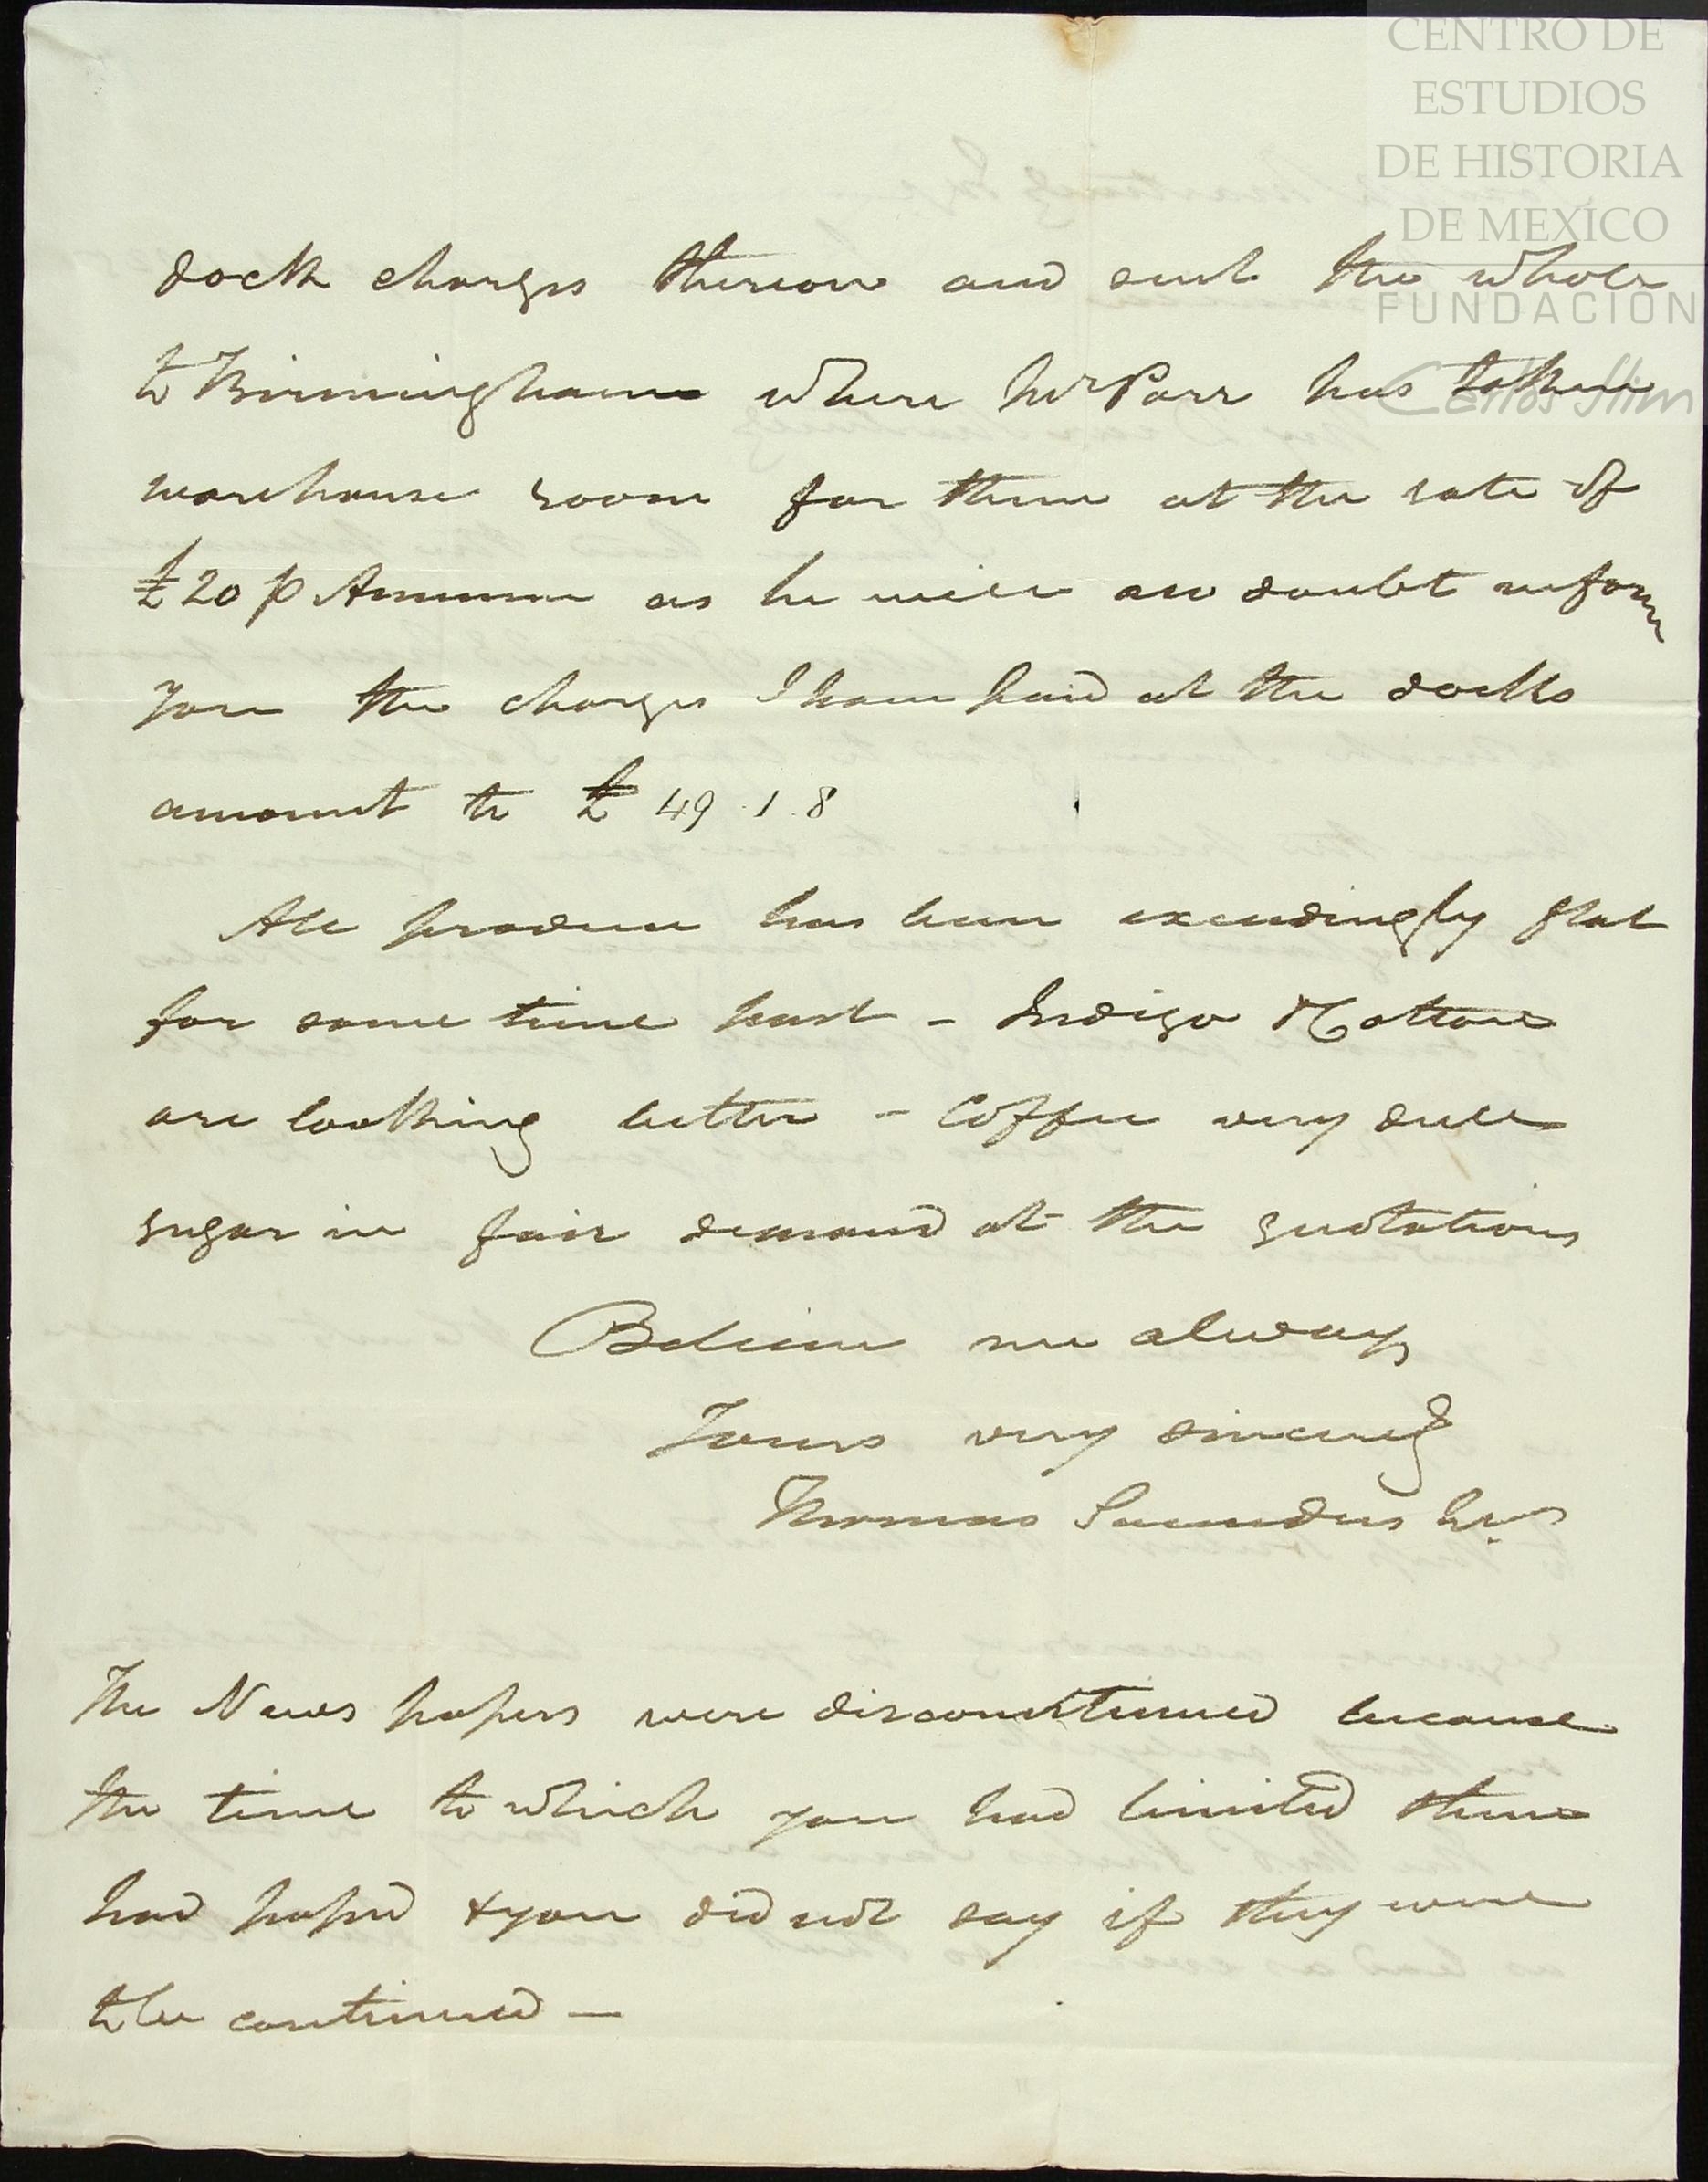 CENTRO DE
ESTUDIOS
DE HISTORIA
DE MEXICO
FUNDACIÓN
Carlos Slim
dock charges thereon and sent the whole
to Birmingham where Mr Parr has taken
warehouse room for them at the rate of
£20 p Annum as he will no doubt inform
you the charges I have paid at the docks
amount to £ 49.1.8
All produce has been exceedingly flat
for some time past - Indigo & Cotton
are looking better - Coffee very dull
sugar in fair demand at the quotations
Believe me always
Yours very sincerely
Thomas Saunders
The News papers were discontinued because
the time to which you had limited them
had passed & you did not say if they were
to be continued —